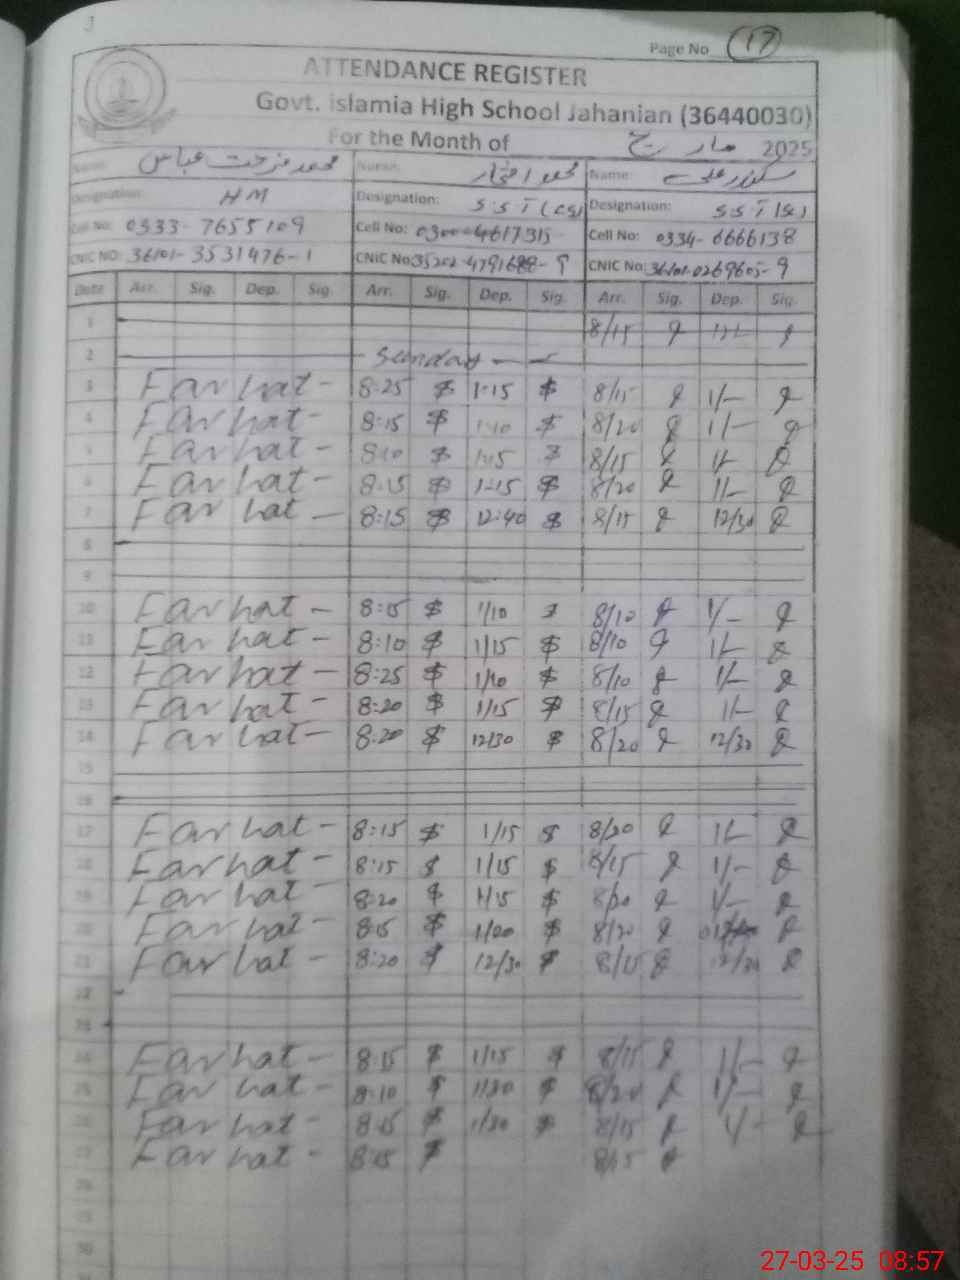 Page No 17
ATTENDANCE REGISTER
Govt. islamia High School Jahanian (36440030)
For the Month of مارچ 2025
Name: محمد فرحت عباس Name: محمد افتخار Name: سکندر علی
Designation: HM Designation: S.S.T (CS) Designation: S.S.T (Sc)
Cell No: 0333-7655109 Cell No: 0300-4617315 Cell No: 0334-6666138
CNIC NO: 36101-3531476-1 CNIC No: CNIC No:
Date Arr. Sig. Dep. Sig. Arr. Sig. Dep. Sig. Arr. Sig. Dep. Sig.
1 8/15
2 Sunday
3 Farhat - 8:25 1:15 8/15 1/-
4 Farhat - 8:15 1:10 8/20 1/-
5 Farhat - 8:10 1:15 8/15 1/-
6 Farhat - 8:15 1:15 8/20 1/-
7 Farhat - 8:15 12:40 8/15 12/30
8
9
10 Farhat - 8:15 1/10 8/10 1/-
11 Farhat - 8:10 1/15 8/10 1/-
12 Farhat - 8:25 1/10 8/10 1/-
13 Farhat - 8:20 1/15 8/15 1/-
14 Farhat - 8:20 12/30 8/20 12/30
15
16
17 Farhat - 8:15 1/15 8/20 1/-
18 Farhat - 8:15 1/15 8/15 1/-
19 Farhat - 8:20 1/15 8/20 1/-
20 Farhat - 8:15 1/20 8/20
21 Farhat - 8:20 12/30 8/15 12/30
22
23
24 Farhat - 8:15 1/15 8/15 1/-
25 Farhat - 8:10 1/20 8/20 1/-
26 Farhat - 8:15 1/20 8/15 1/-
27 Farhat - 8:15 8/15
28
29
30
27-03-25 08:57